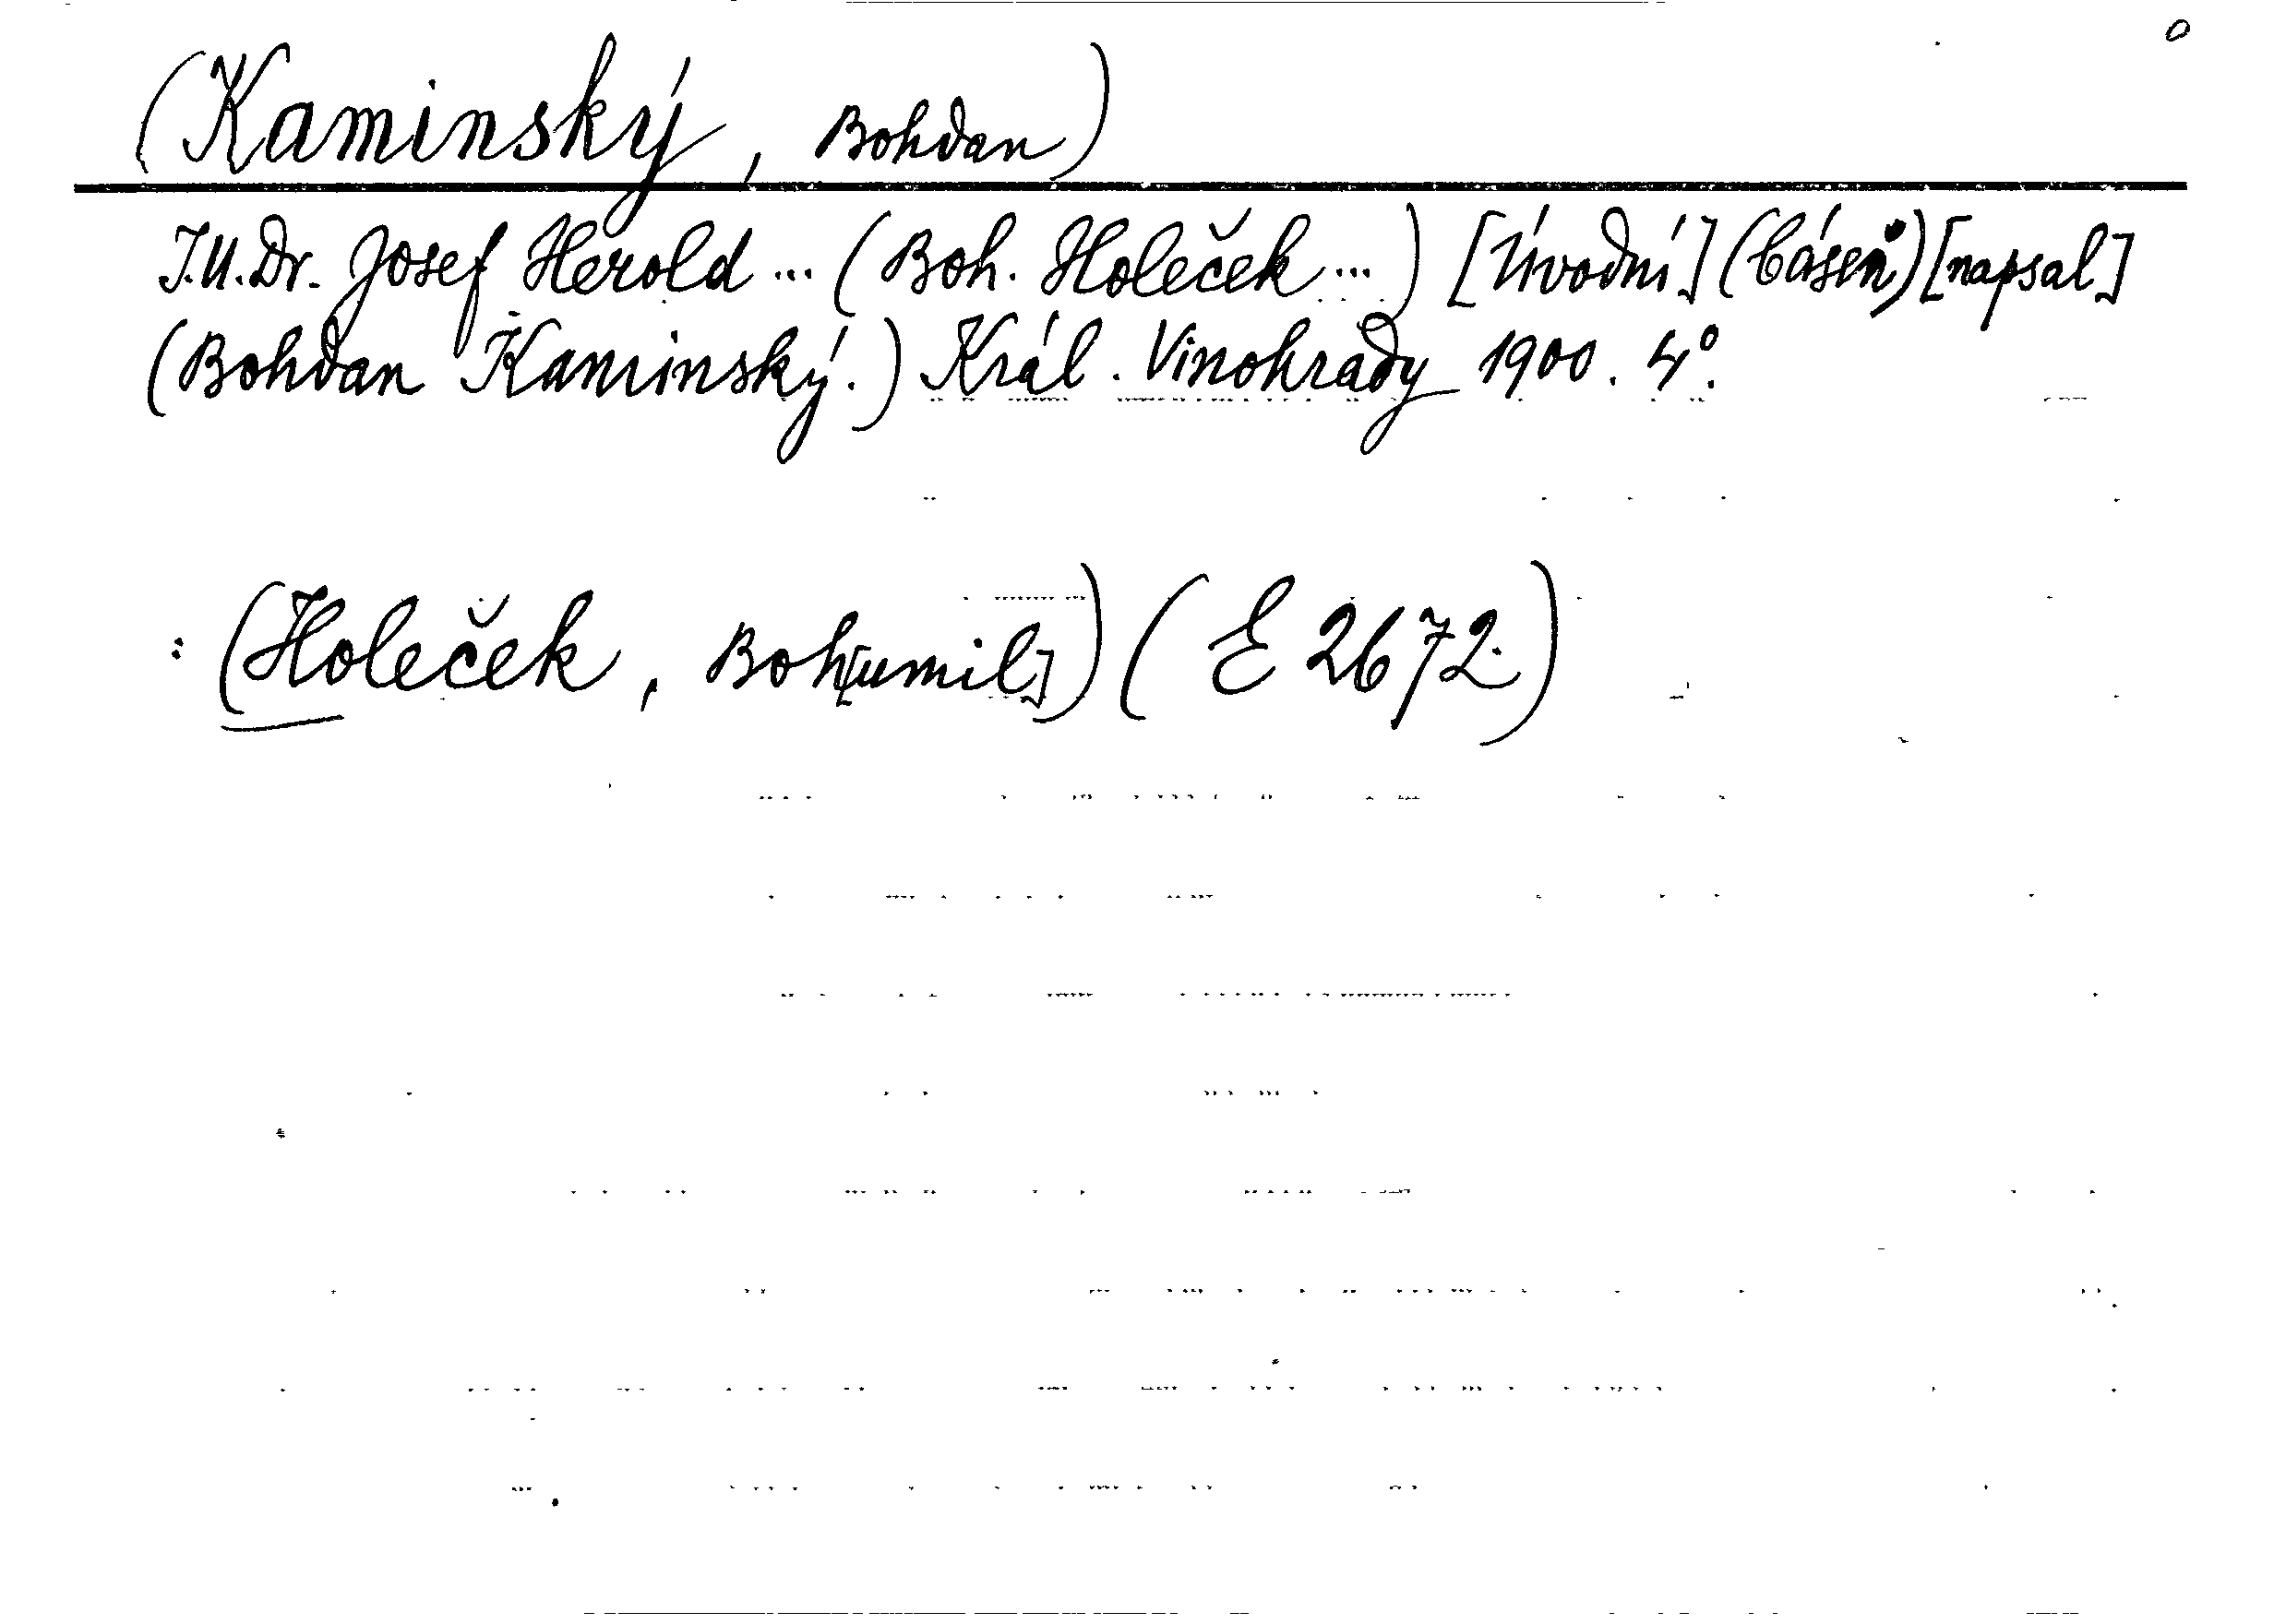 (Kaminský, Bohdan)
J.U.Dr. Josef Herold ... (Boh. Holeček ...) [Úvodní] (báseň) [napsal]
(Bohdan Kaminský.) Král. Vinohrady 1900. 4°.
: (Holeček, Boh[umil]) (E 2672.)